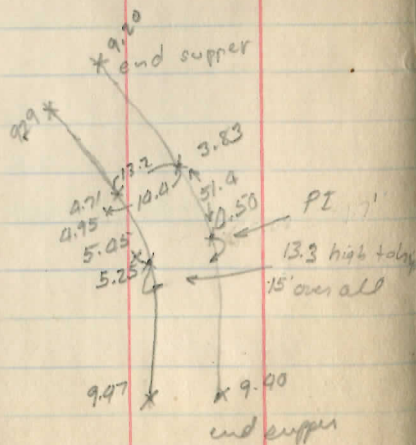 9.20
end supper
929
3.83
13.2
4.71
14.4
51.4
4.95
0.50
PI
5.45
5.25
13.3 high
15' over all
9.97
9.90
end supper